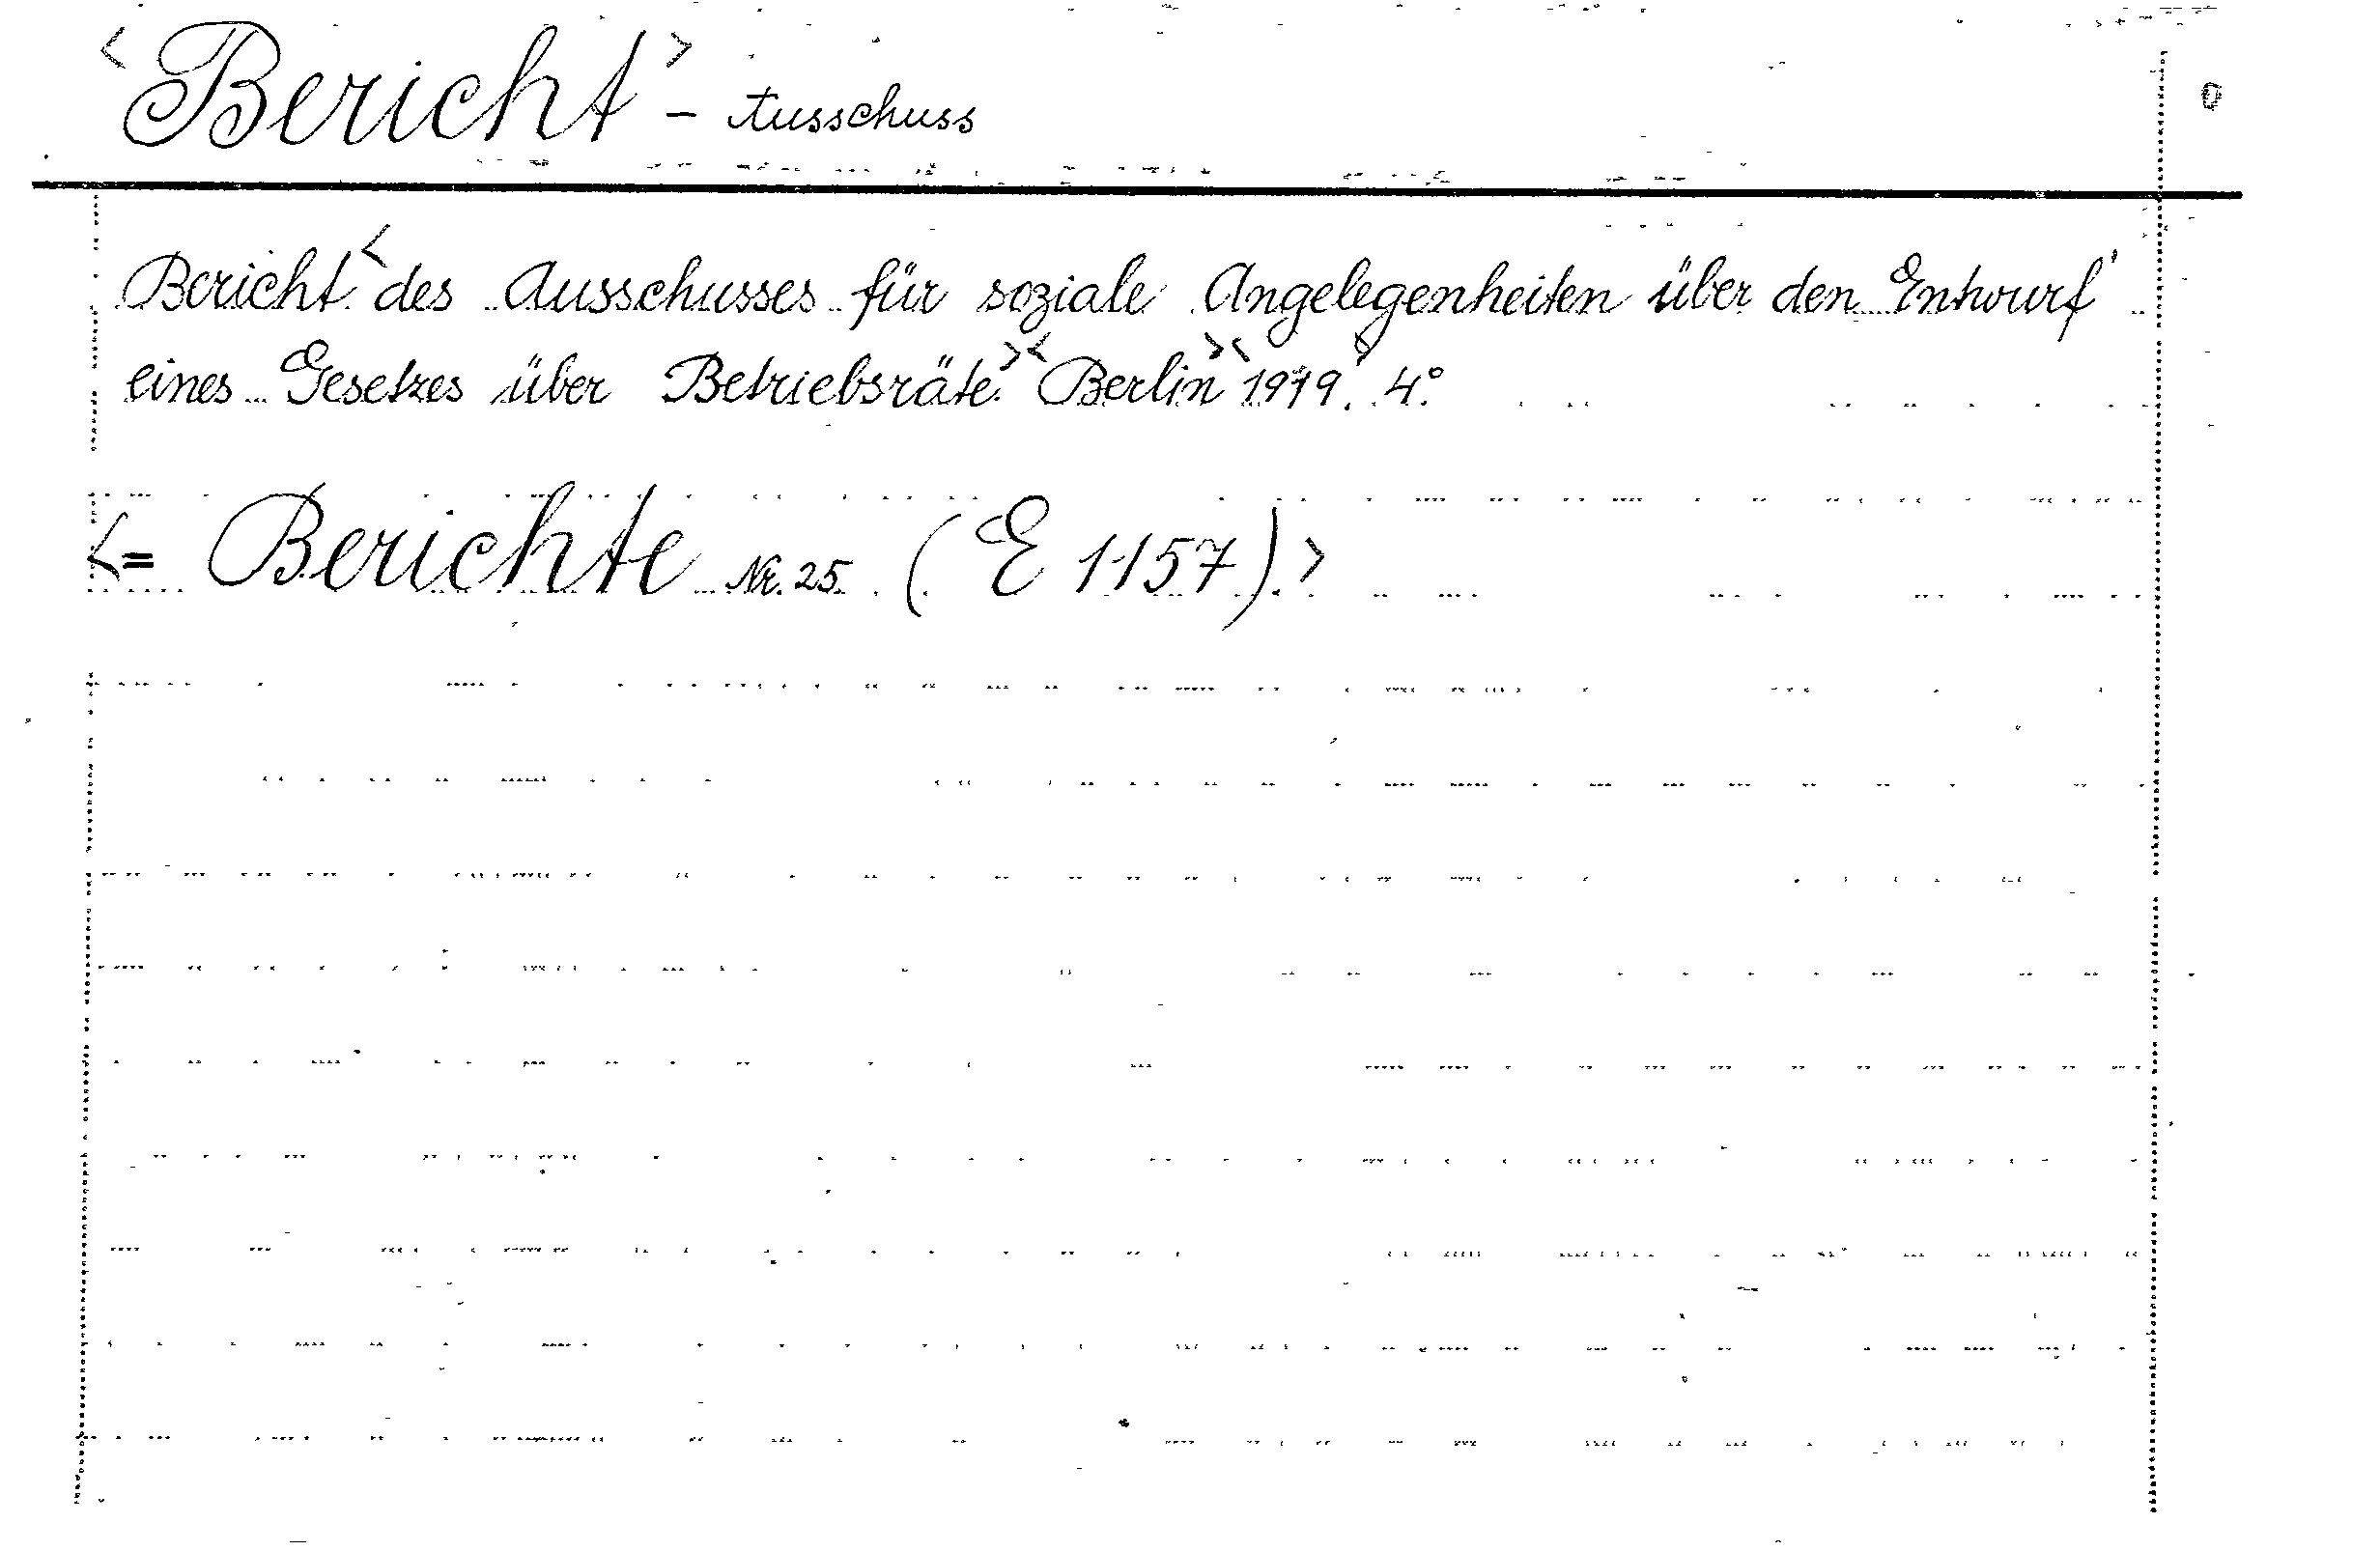 <Bericht> - Ausschuss
Bericht < des Ausschusses für soziale Angelegenheiten über den Entwurf
eines Gesetzes über Betriebsräte. >< Berlin >< 1919. 4°.
<= Berichte Nr. 25. (E 1157). >